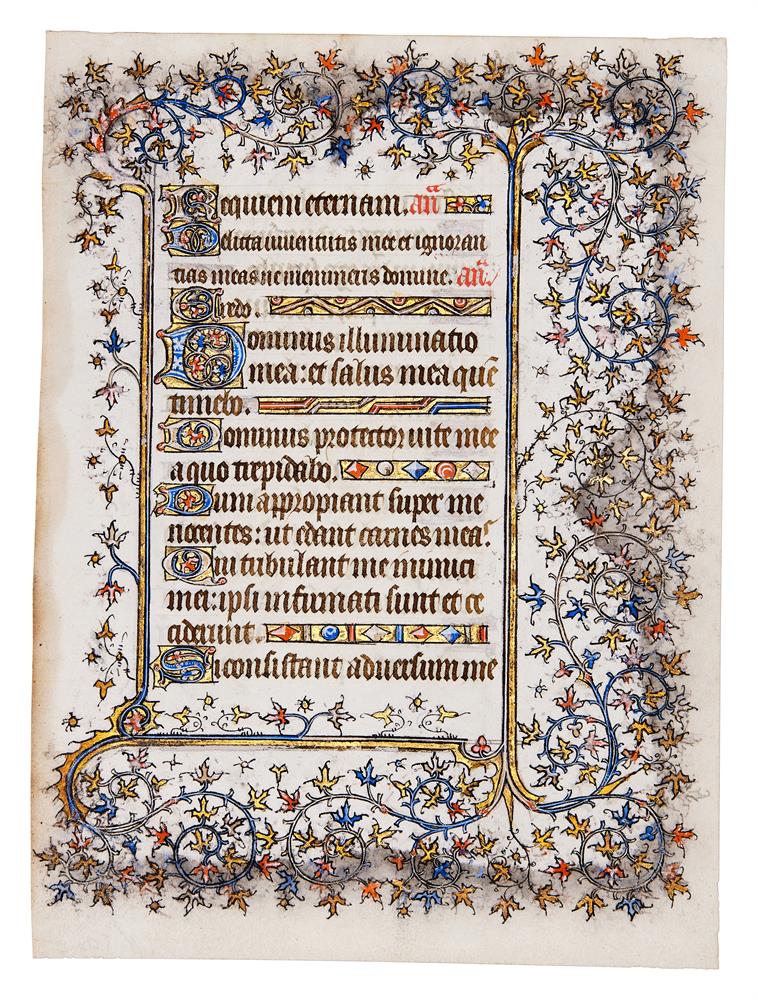 Requiem eternam. añ
Delicta iuuentutis mee et ignoran
tias meas ne memineris domine. añ.
Credo.
Dominus illuminatio
mea: et salus mea quē
timebo.
Dominus protector uite mee
a quo trepidabo.
Dum appropiant super me
nocentes: ut edant carnes meas.
Qui tribulant me inimici
mei: ipsi infirmati sunt et ce
ciderunt.
Si consistant aduersum me